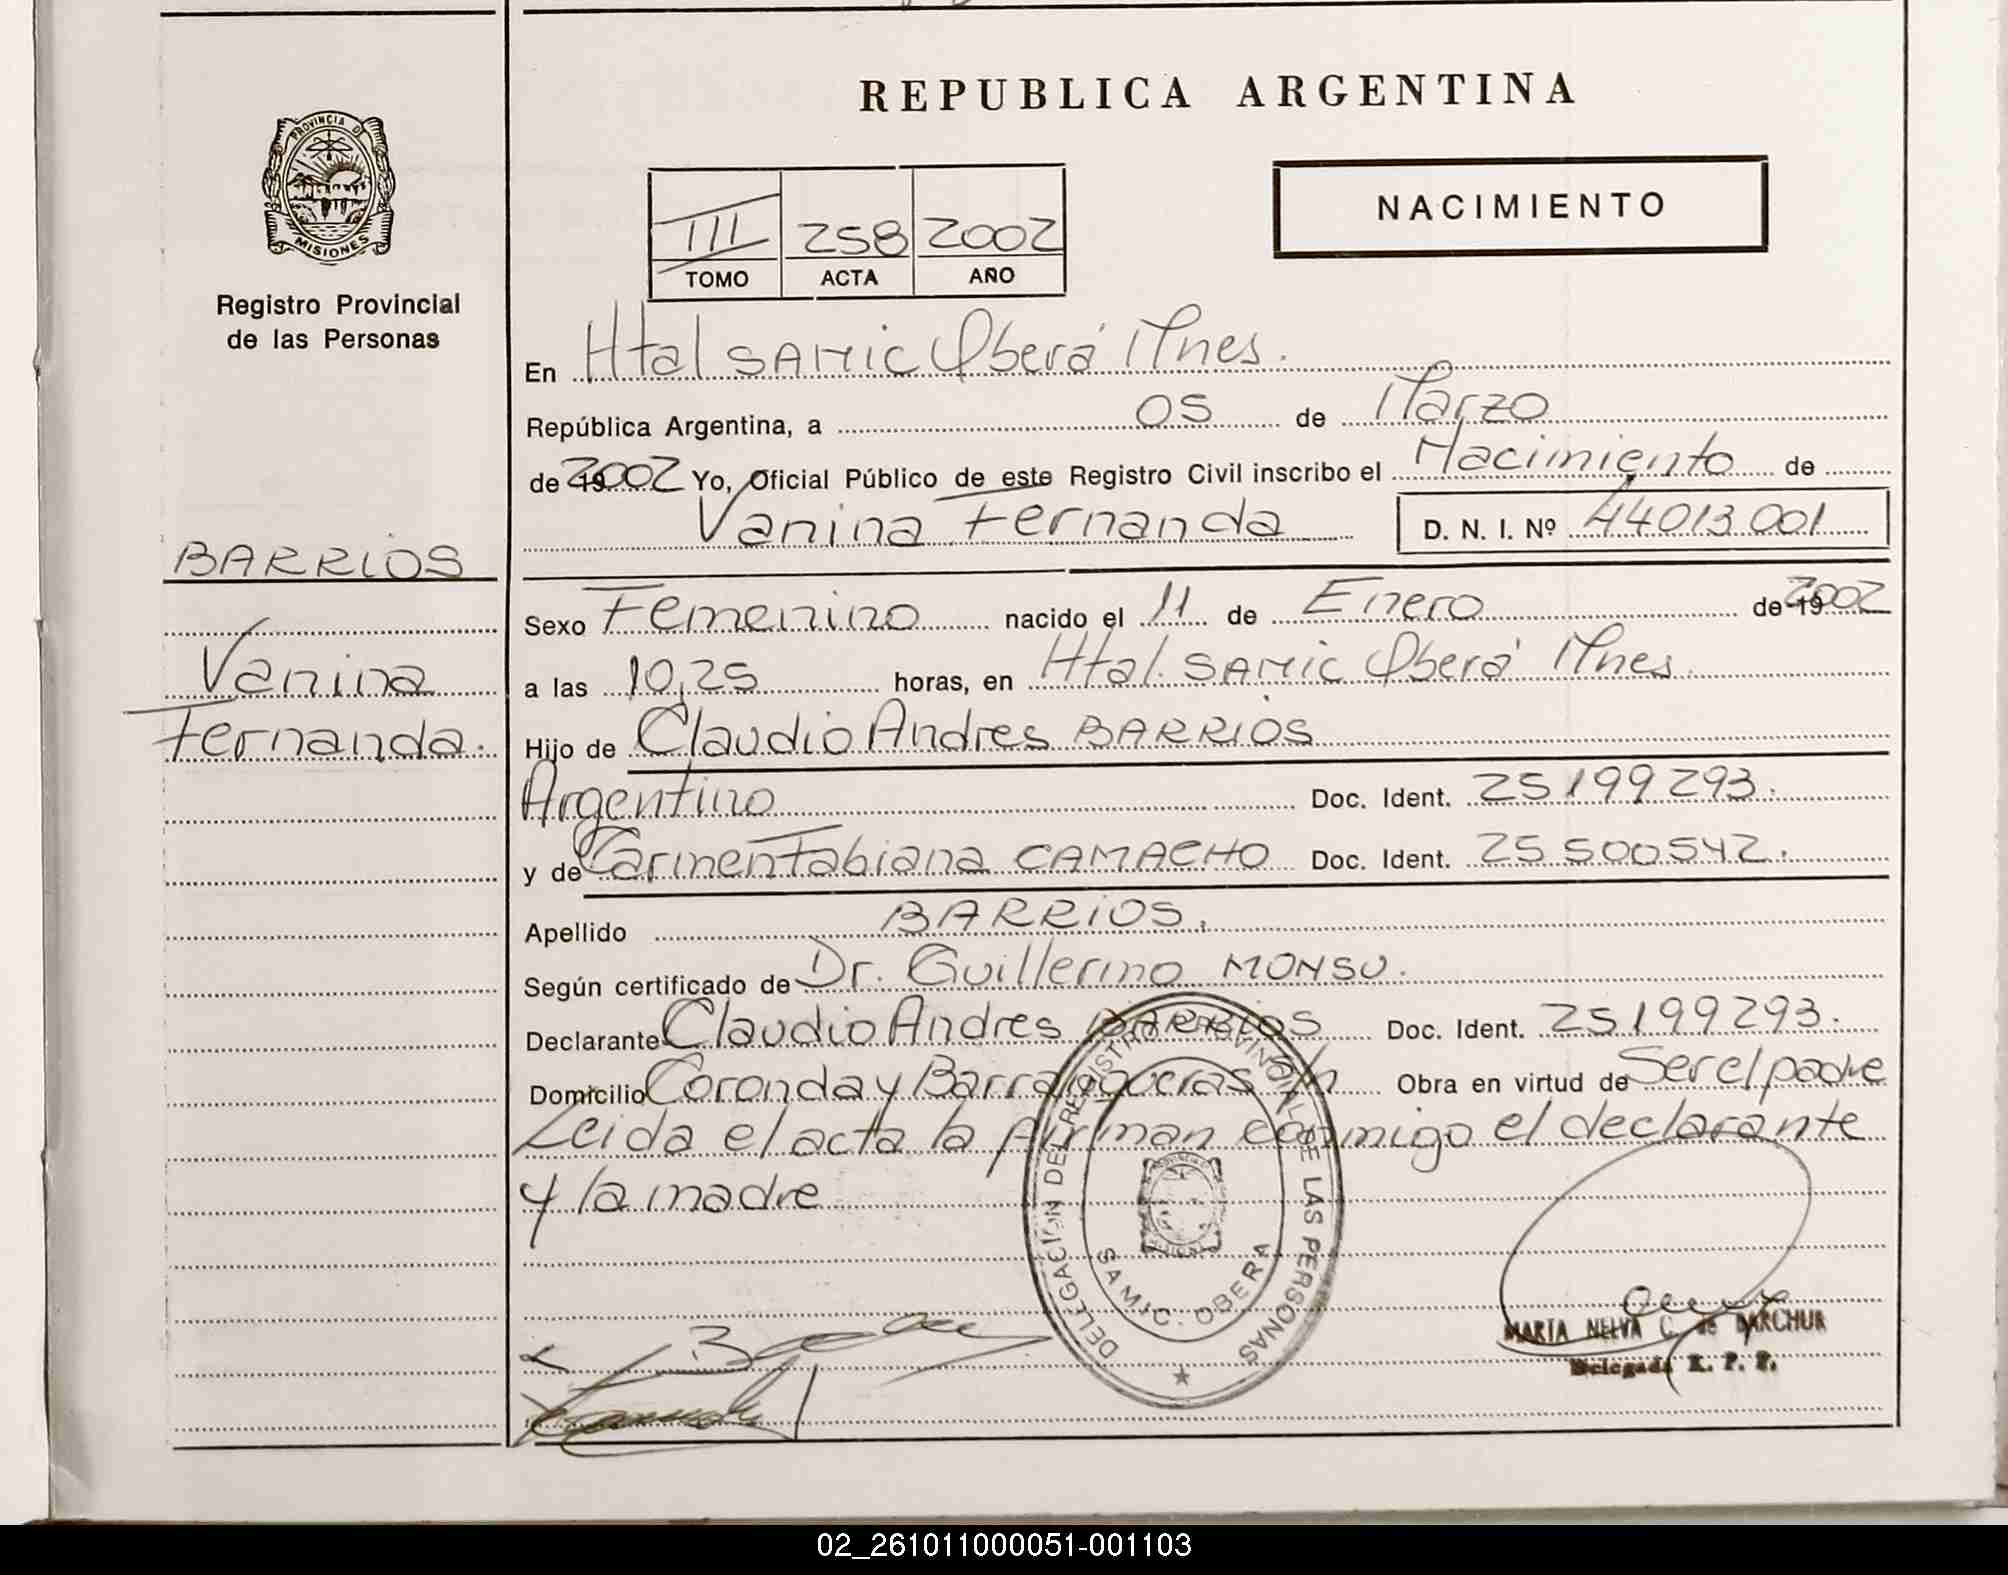 REPUBLICA ARGENTINA
PROVINCIA DE
MISIONES
Registro Provincial
de las Personas
III 258 2002
TOMO ACTA AÑO
NACIMIENTO
En Htal SAMIC Oberá Mnes.
República Argentina, a 05 de Marzo
de 2002 Yo, Oficial Público de este Registro Civil inscribo el Nacimiento de
Vanina Fernanda D. N. I. Nº 44013001
BARRIOS
Vanina
Fernanda.
Sexo Femenino nacido el 11 de Enero de 19 2002
a las 10,25 horas, en Htal. SAMIC Oberá Mnes.
Hijo de Claudio Andres BARRIOS
Argentino Doc. Ident. 25199293.
y de Carmen Fabiana CAMACHO Doc. Ident. 25500542.
Apellido BARRIOS.
Según certificado de Dr. Guillermo MONSU.
Declarante Claudio Andres BARRIOS Doc. Ident. 25199293.
Domicilio Coronda y Barranqueras s/n Obra en virtud de Ser el padre
Leida el acta la firman conmigo el declarante
y la madre
DELEGACIÓN DEL REGISTRO PROVINCIAL DE LAS PERSONAS
SAMIC. OBERA
MARIA NELVA C. de BARCHUK
Delegada R. P. P.
02_261011000051-001103